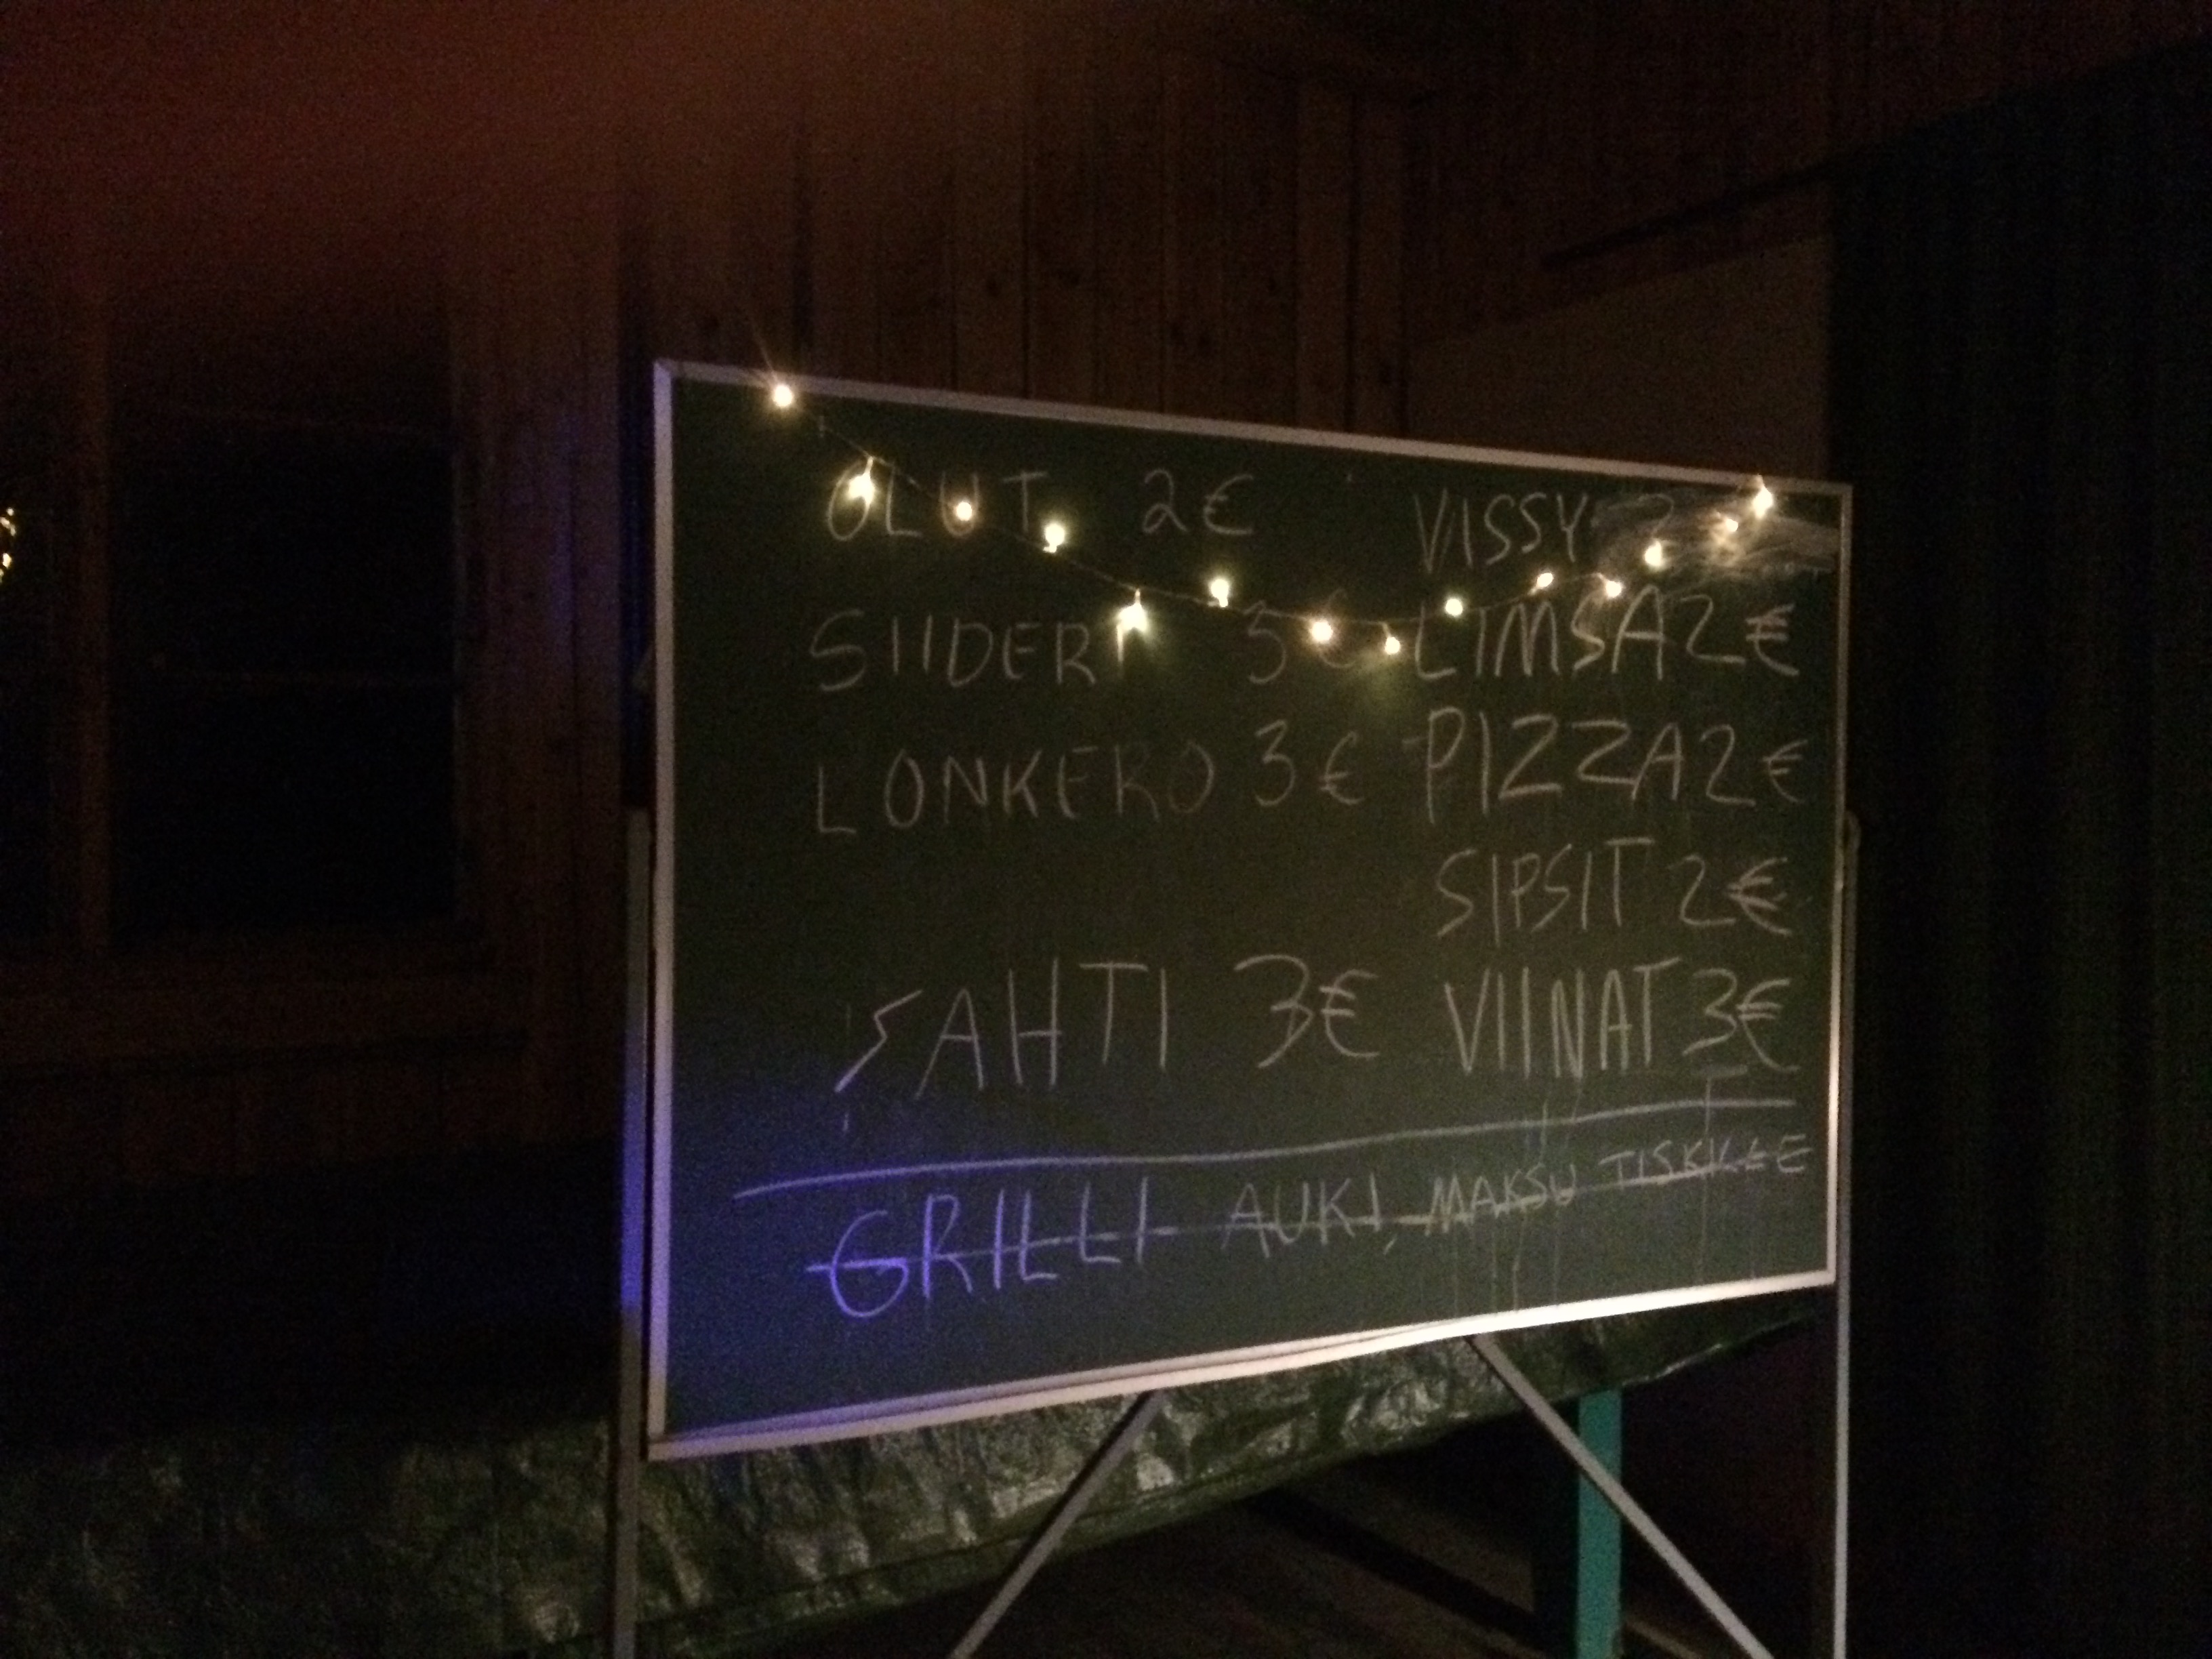 OLUT 2€ VISSY
SIIDERI 3€ LIMSA 2€
LONKERO 3€ PIZZA 2€
SIPSIT 2€
SAHTI 3€ VIINAT 3€
GRILLI AUKI, MAKSU TISKILLE